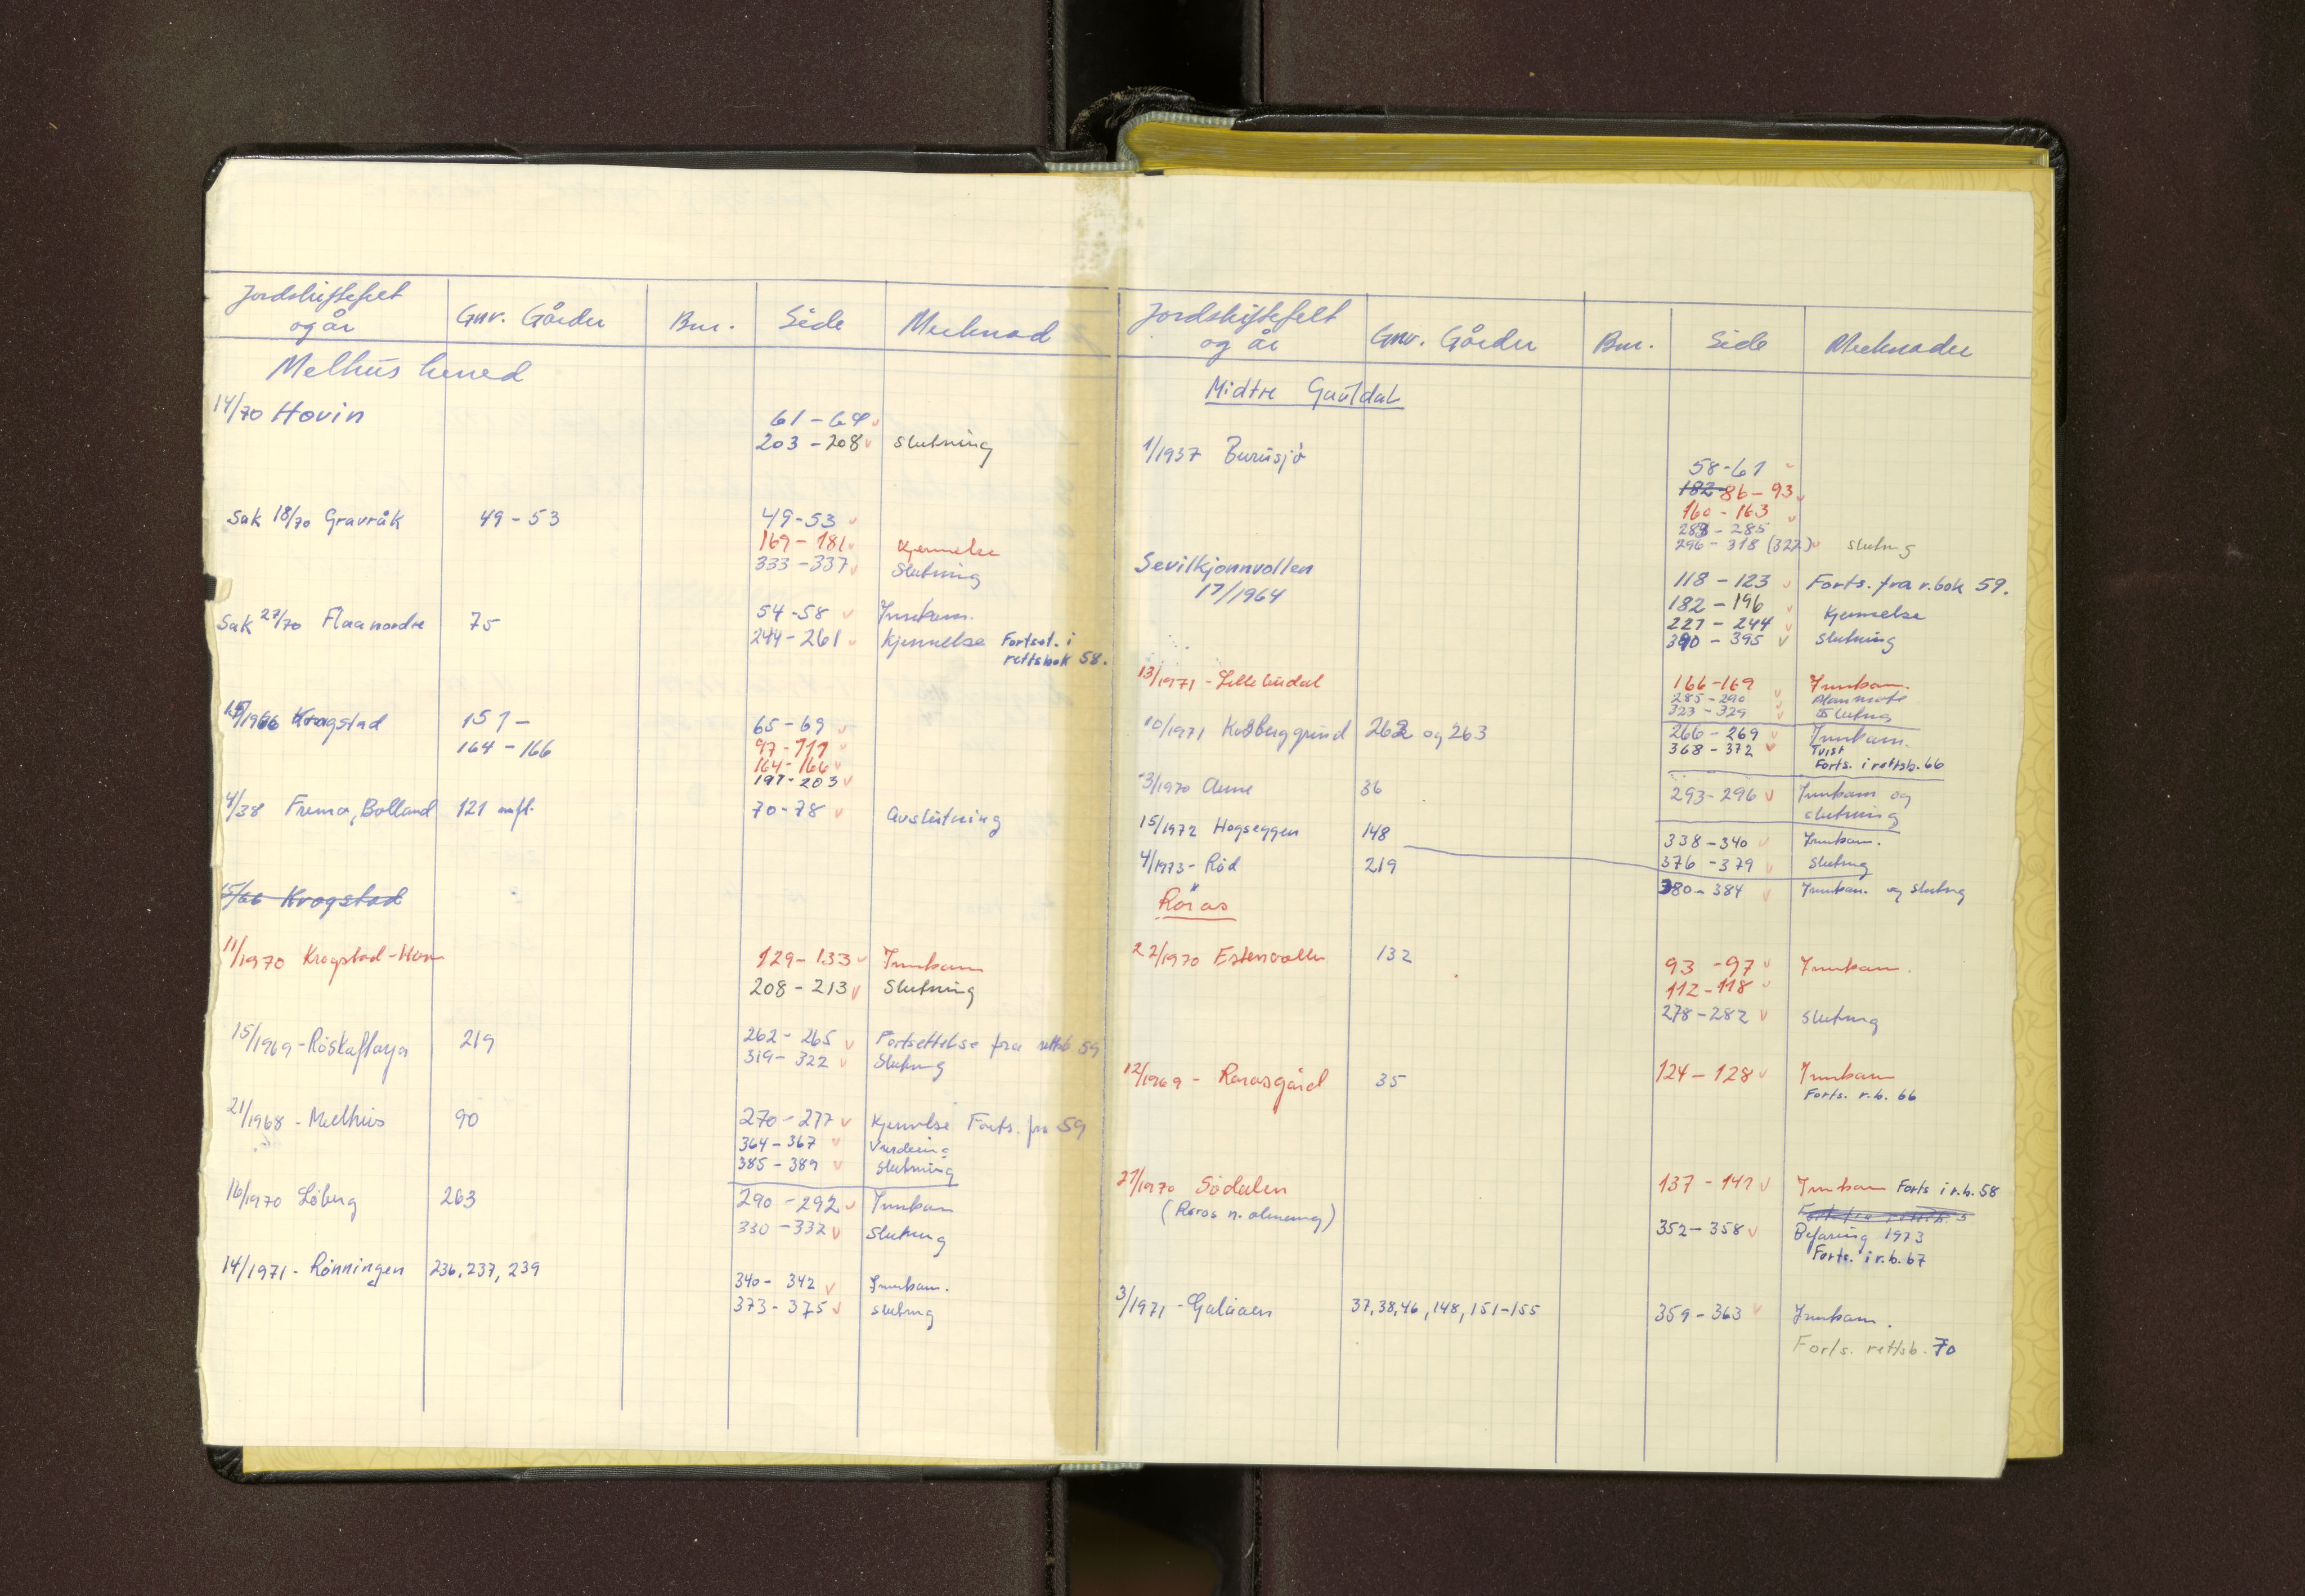 Jordskiftefelt og år Gnr. Gårder Bnr. Side Merknad
Melhus herred
14/70 Hovin 61-64
203-208 Slutning
Sak 18/70 Gravråk 49-53 49-53
169-181 Kjennelse
333-337 Slutning
Sak 27/70 Flaa nordre 75 54-58 Innkom.
244-261 Kjennelse Fortset. i
rettsbok 58.
15/1966 Krogstad 151- 65-69
164-166 97-111
164-166
197-203
4/38 Fremo, Bolland 121 mfl. 70-78 Avslutning
15/66 Krogstad
11/1970 Krogstad-Hom 129-133 Innkom
208-213 Slutning
15/1969-Röskaftøya 219 262-265 Fortsettelse fra rettsb 59
319-322 Slutning
21/1968-Melhus 90 270-277 Kjennelse Forts. fra 59
364-367 Vurdering
385-389 Slutning
16/1970 Löberg 263 290-292 Innkom
330-332 Slutning
14/1971-Rönningen 236,237,239
340-342 Innkom.
373-375 slutning
Jordskiftefelt og år Gnr. Gårder Bnr. Side Merknader
Midtre Gauldal
1/1937 Burusjö
58-61
182-86-93
160-163
283-285
296-318 (322) slutning
Sevilkjonnvollen
17/1964
118-123 Forts. fra r.bok 59.
182-196 Kjennelse
227-244
390-395 Slutning
13/1971-Lillebudal 166-169 Innkom.
285-290
323-329 Slutning
10/1971 Kotberggrind 262 og 263 266-269 Innkom.
368-372 Tvist
Forts. i rettsb. 66
3/1970 Aune 36 293-296 Innkom og
slutning
15/1972 Hogseggen 148 338-340 Innkom.
376-379 Slutning
4/1973-Röd 219 380-384 Innkom. og slutning
Röros
22/1970 Estenvollen 132 93-97 Innkom.
112-118
278-282 Slutning
12/1969-Rorosgård 35 124-128 Innkom
Forts. r.b. 66
27/1970 Södalen 137-141 Innkom Forts i r.b. 58
(Roros n. almenning)
352-358 Befaring 1973
Forts. i r.b. 67
3/1971-Galåaen 37,38,46,148,151-155 359-363 Innkom.
Forts. rettsb. 70